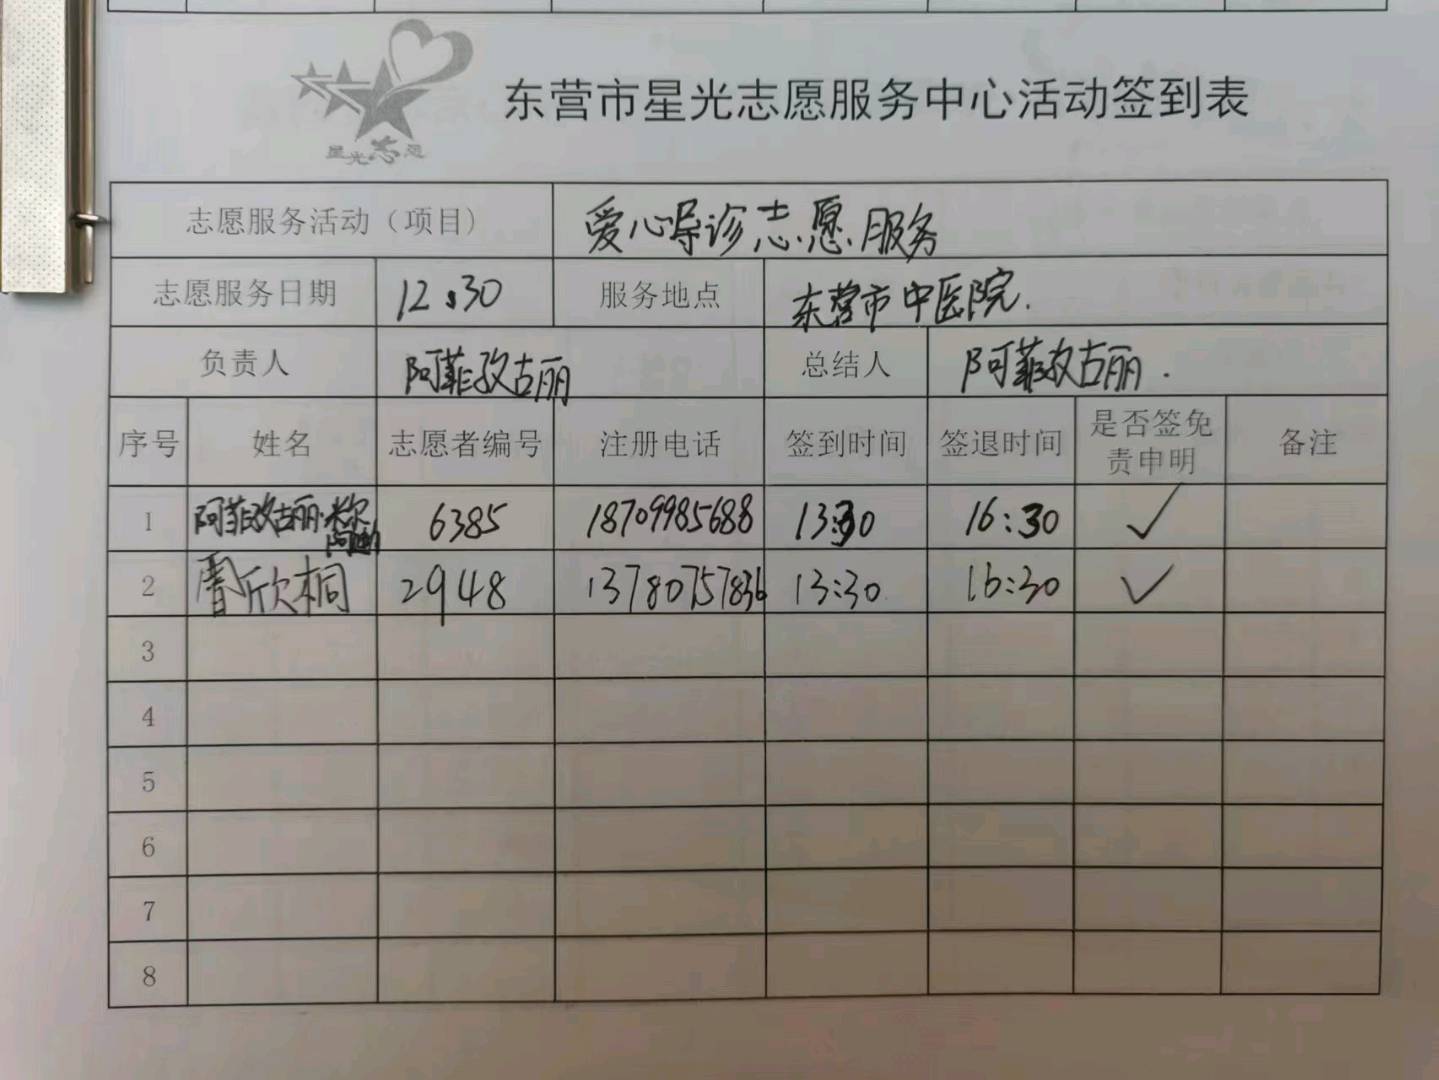 星光志愿
东营市星光志愿服务中心活动签到表
志愿服务活动（项目） 爱心导诊志愿服务
志愿服务日期 12.30 服务地点 东营市中医院.
负责人 阿菲孜古丽 总结人 阿菲孜古丽.
序号 姓名 志愿者编号 注册电话 签到时间 签退时间 是否签免责申明 备注
1 阿菲孜古丽·米尔 6385 18709985688 13:30 16:30 ✓
2 欣桐 2948 13780757836 13:30 16:30 ✓
3
4
5
6
7
8